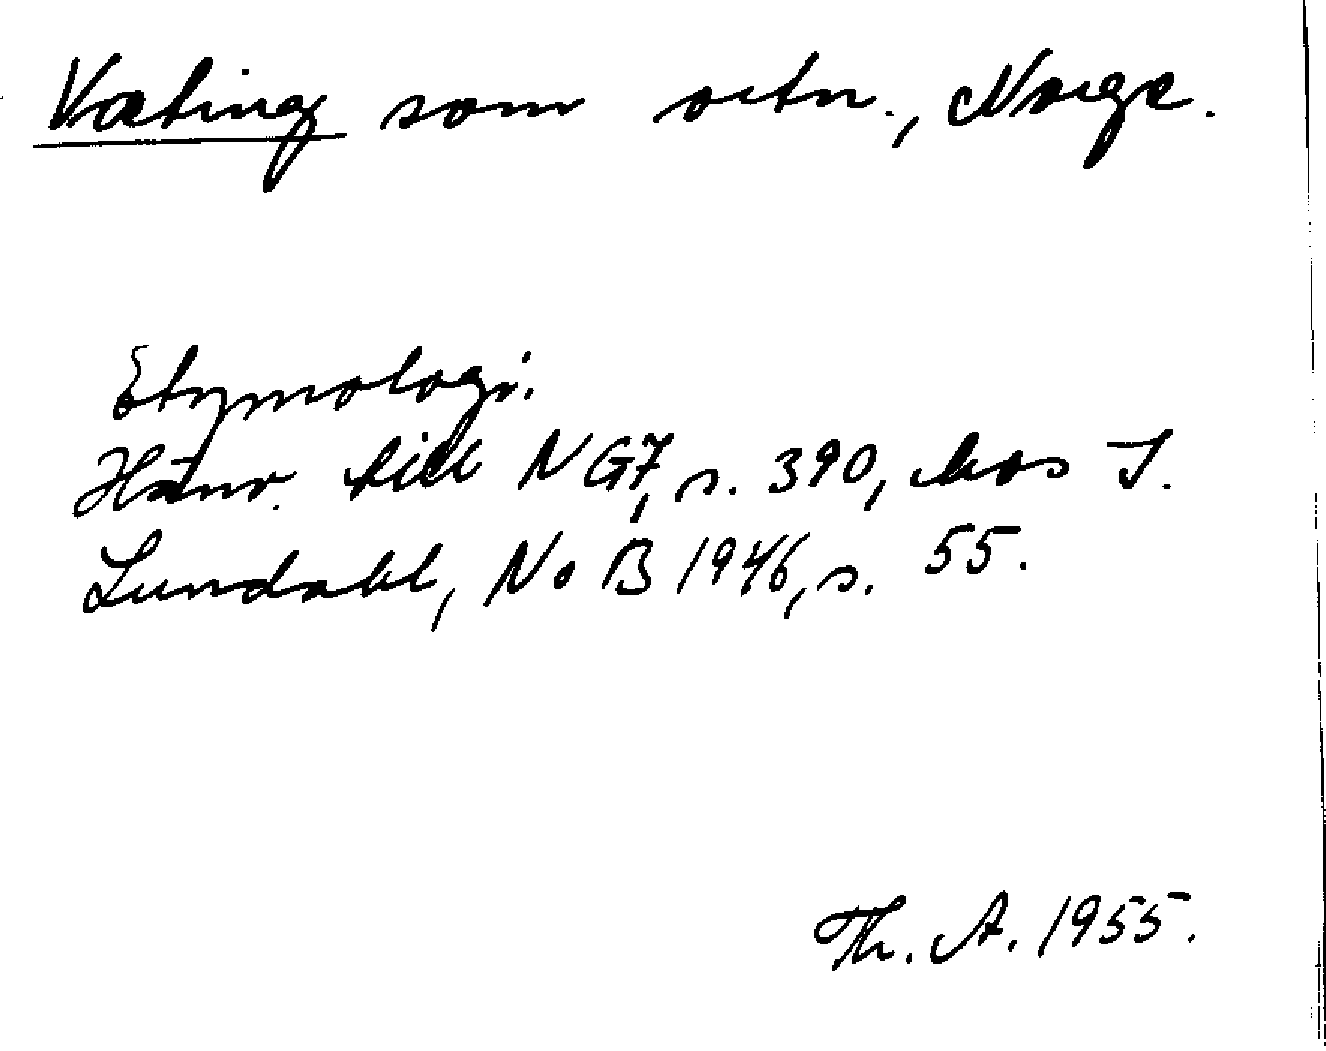 Vœting som ortn., Norge.
Etymologi.
Hänv. till NG7, s. 390, hos I.
Lundahl, NoB 1946, s. 55.
Th. A. 1955.